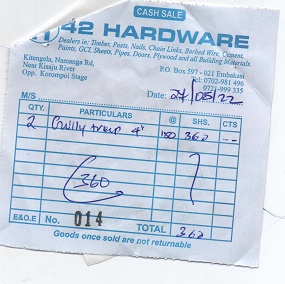 CASH SALE
42 HARDWARE
Dealers in: Timber, Posts, Nails, Chain Links, Barbed Wire, Cement,
Paints, GCI. Sheets, Pipes, Doors, Plywood and all Building Materials
Kitengela, Namanga Rd,
Near Kisaju River
Opp. Korompoi Stage
P.O. Box 597 - 021 Embakasi
Tel: 0702-981 496
0721-999 335
Date: 24/05/22
M/S
QTY. PARTICULARS @ SHS. CTS
2 Gully trap 4" 180 360 --
360
E&O.E No. 014 TOTAL 360
Goods once sold are not returnable